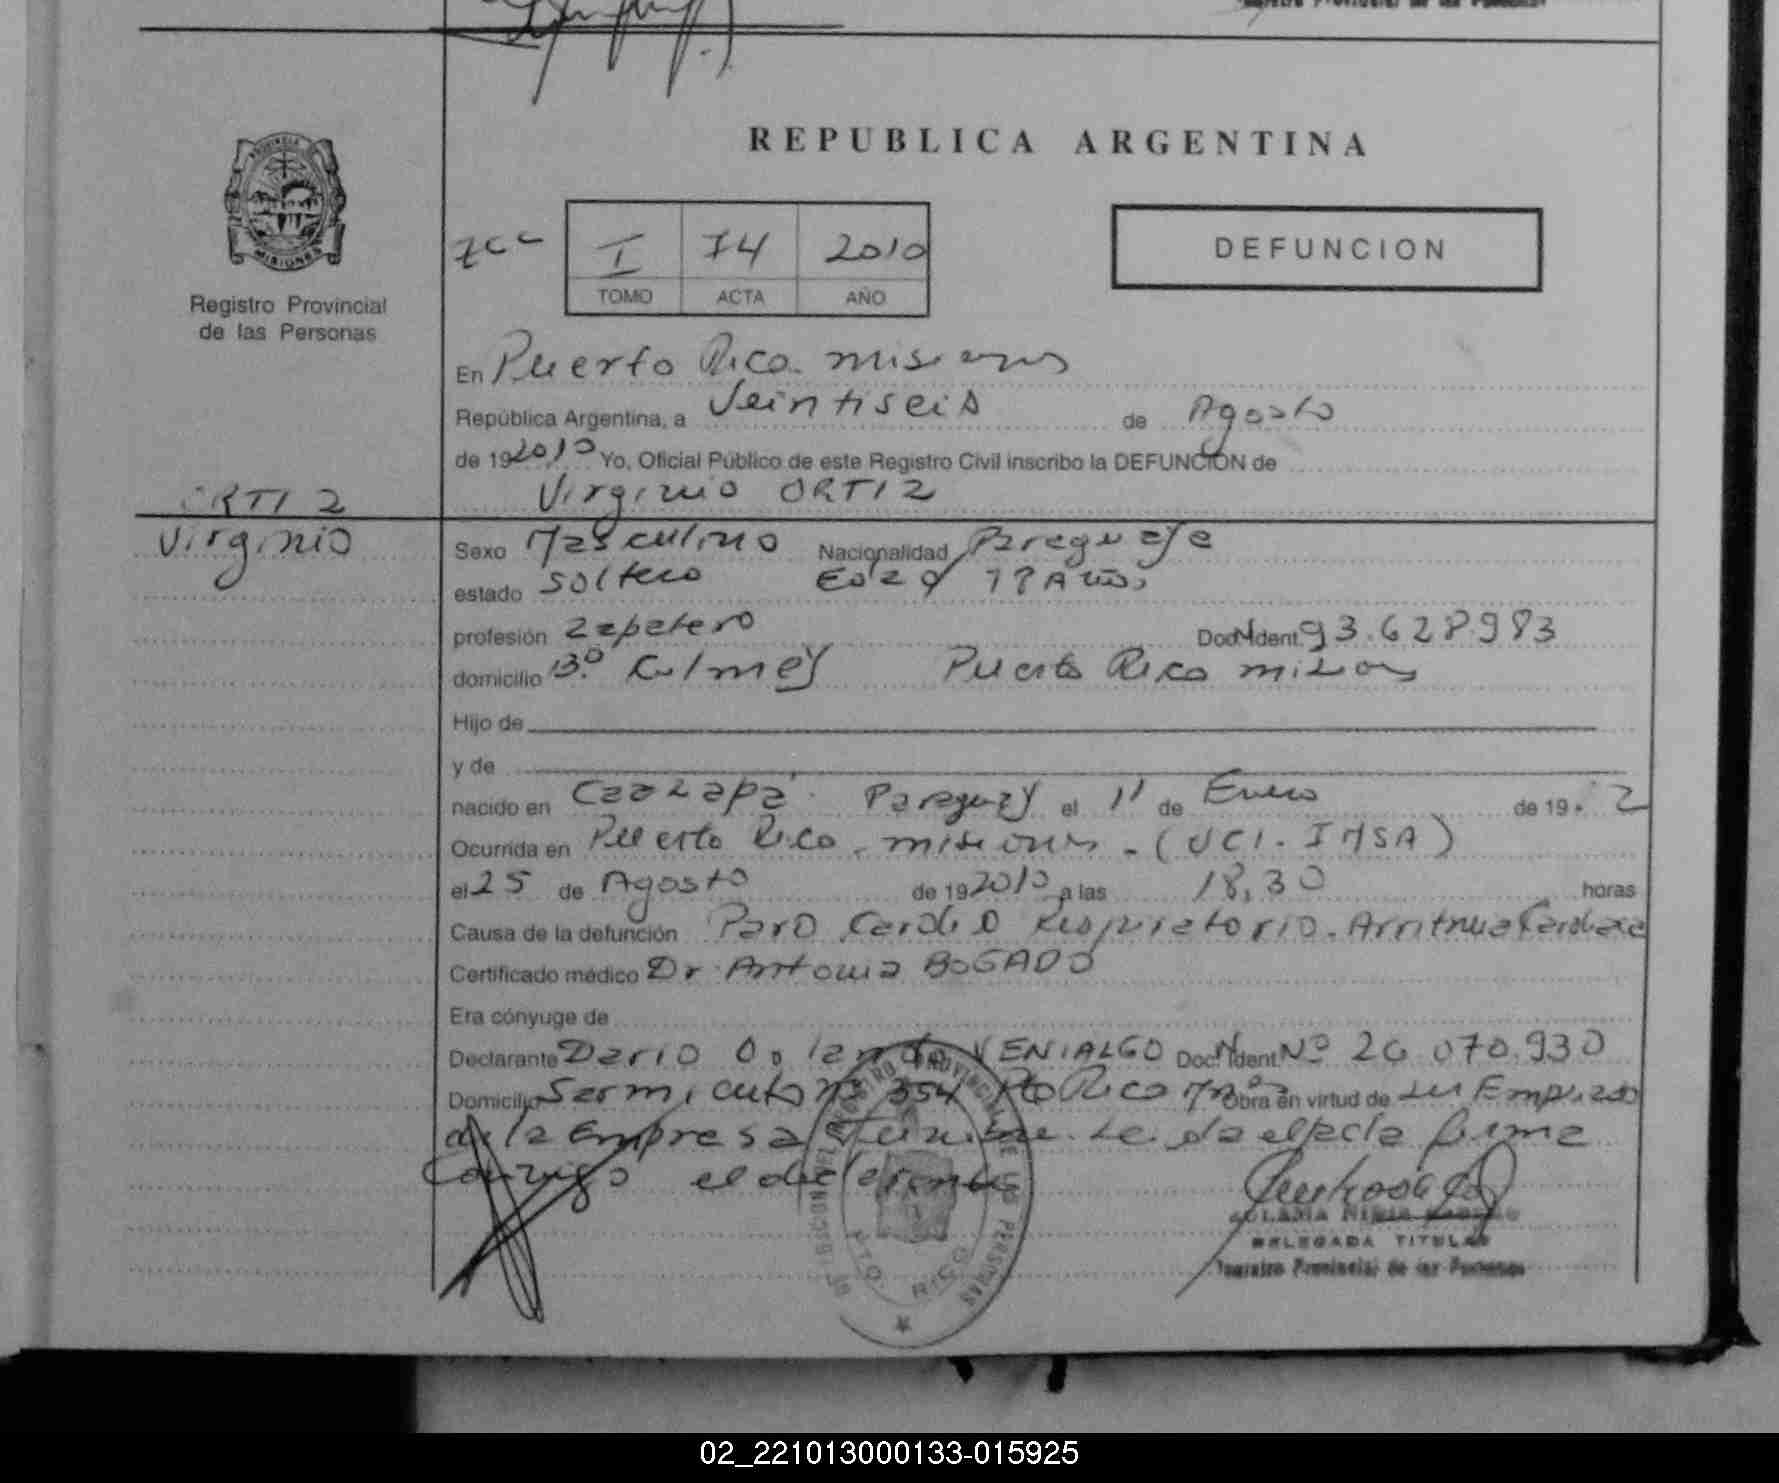 REPUBLICA ARGENTINA
PROVINCIA DE
MISIONES
Registro Provincial
de las Personas
I 74 2010
TOMO ACTA AÑO
DEFUNCION
En Puerto Rico. misiones
República Argentina, a Veintiseis de Agosto
de 19 2010 Yo, Oficial Público de este Registro Civil inscribo la DEFUNCION de
Virginio ORTIZ
ORTIZ
Virginio
Sexo Masculino Nacionalidad Paraguaya
estado soltero Edad 78 Años
profesión Zapatero Doc. Ident. 93.628.983
domicilio Bº Culmey Puerto Rico misiones
Hijo de
y de
nacido en Caazapá Paraguay el 1º de Enero de 19
Ocurrida en Puerto Rico. misiones. (UCI. IMSA)
el 25 de Agosto de 19 2010 a las 18,30 horas
Causa de la defunción Paro Cardio Respiratorio. Arritmia Cardiaca
Certificado médico Dr. Antonia BOGADO
Era cónyuge de
Declarante Dario Orlando VENIALGO Doc. Ident. Nº 26.070.930
Domicilio Sarmiento Nº 354 Pto Rico Mnes Obra en virtud de su Empleado
de la Empresa se da el acta firma
Conmigo el declarante
DELEGADA TITULAR
Registro Provincial de las Personas
REGISTRO PROVINCIAL DE LAS PERSONAS
PTO. RICO
02_221013000133-015925